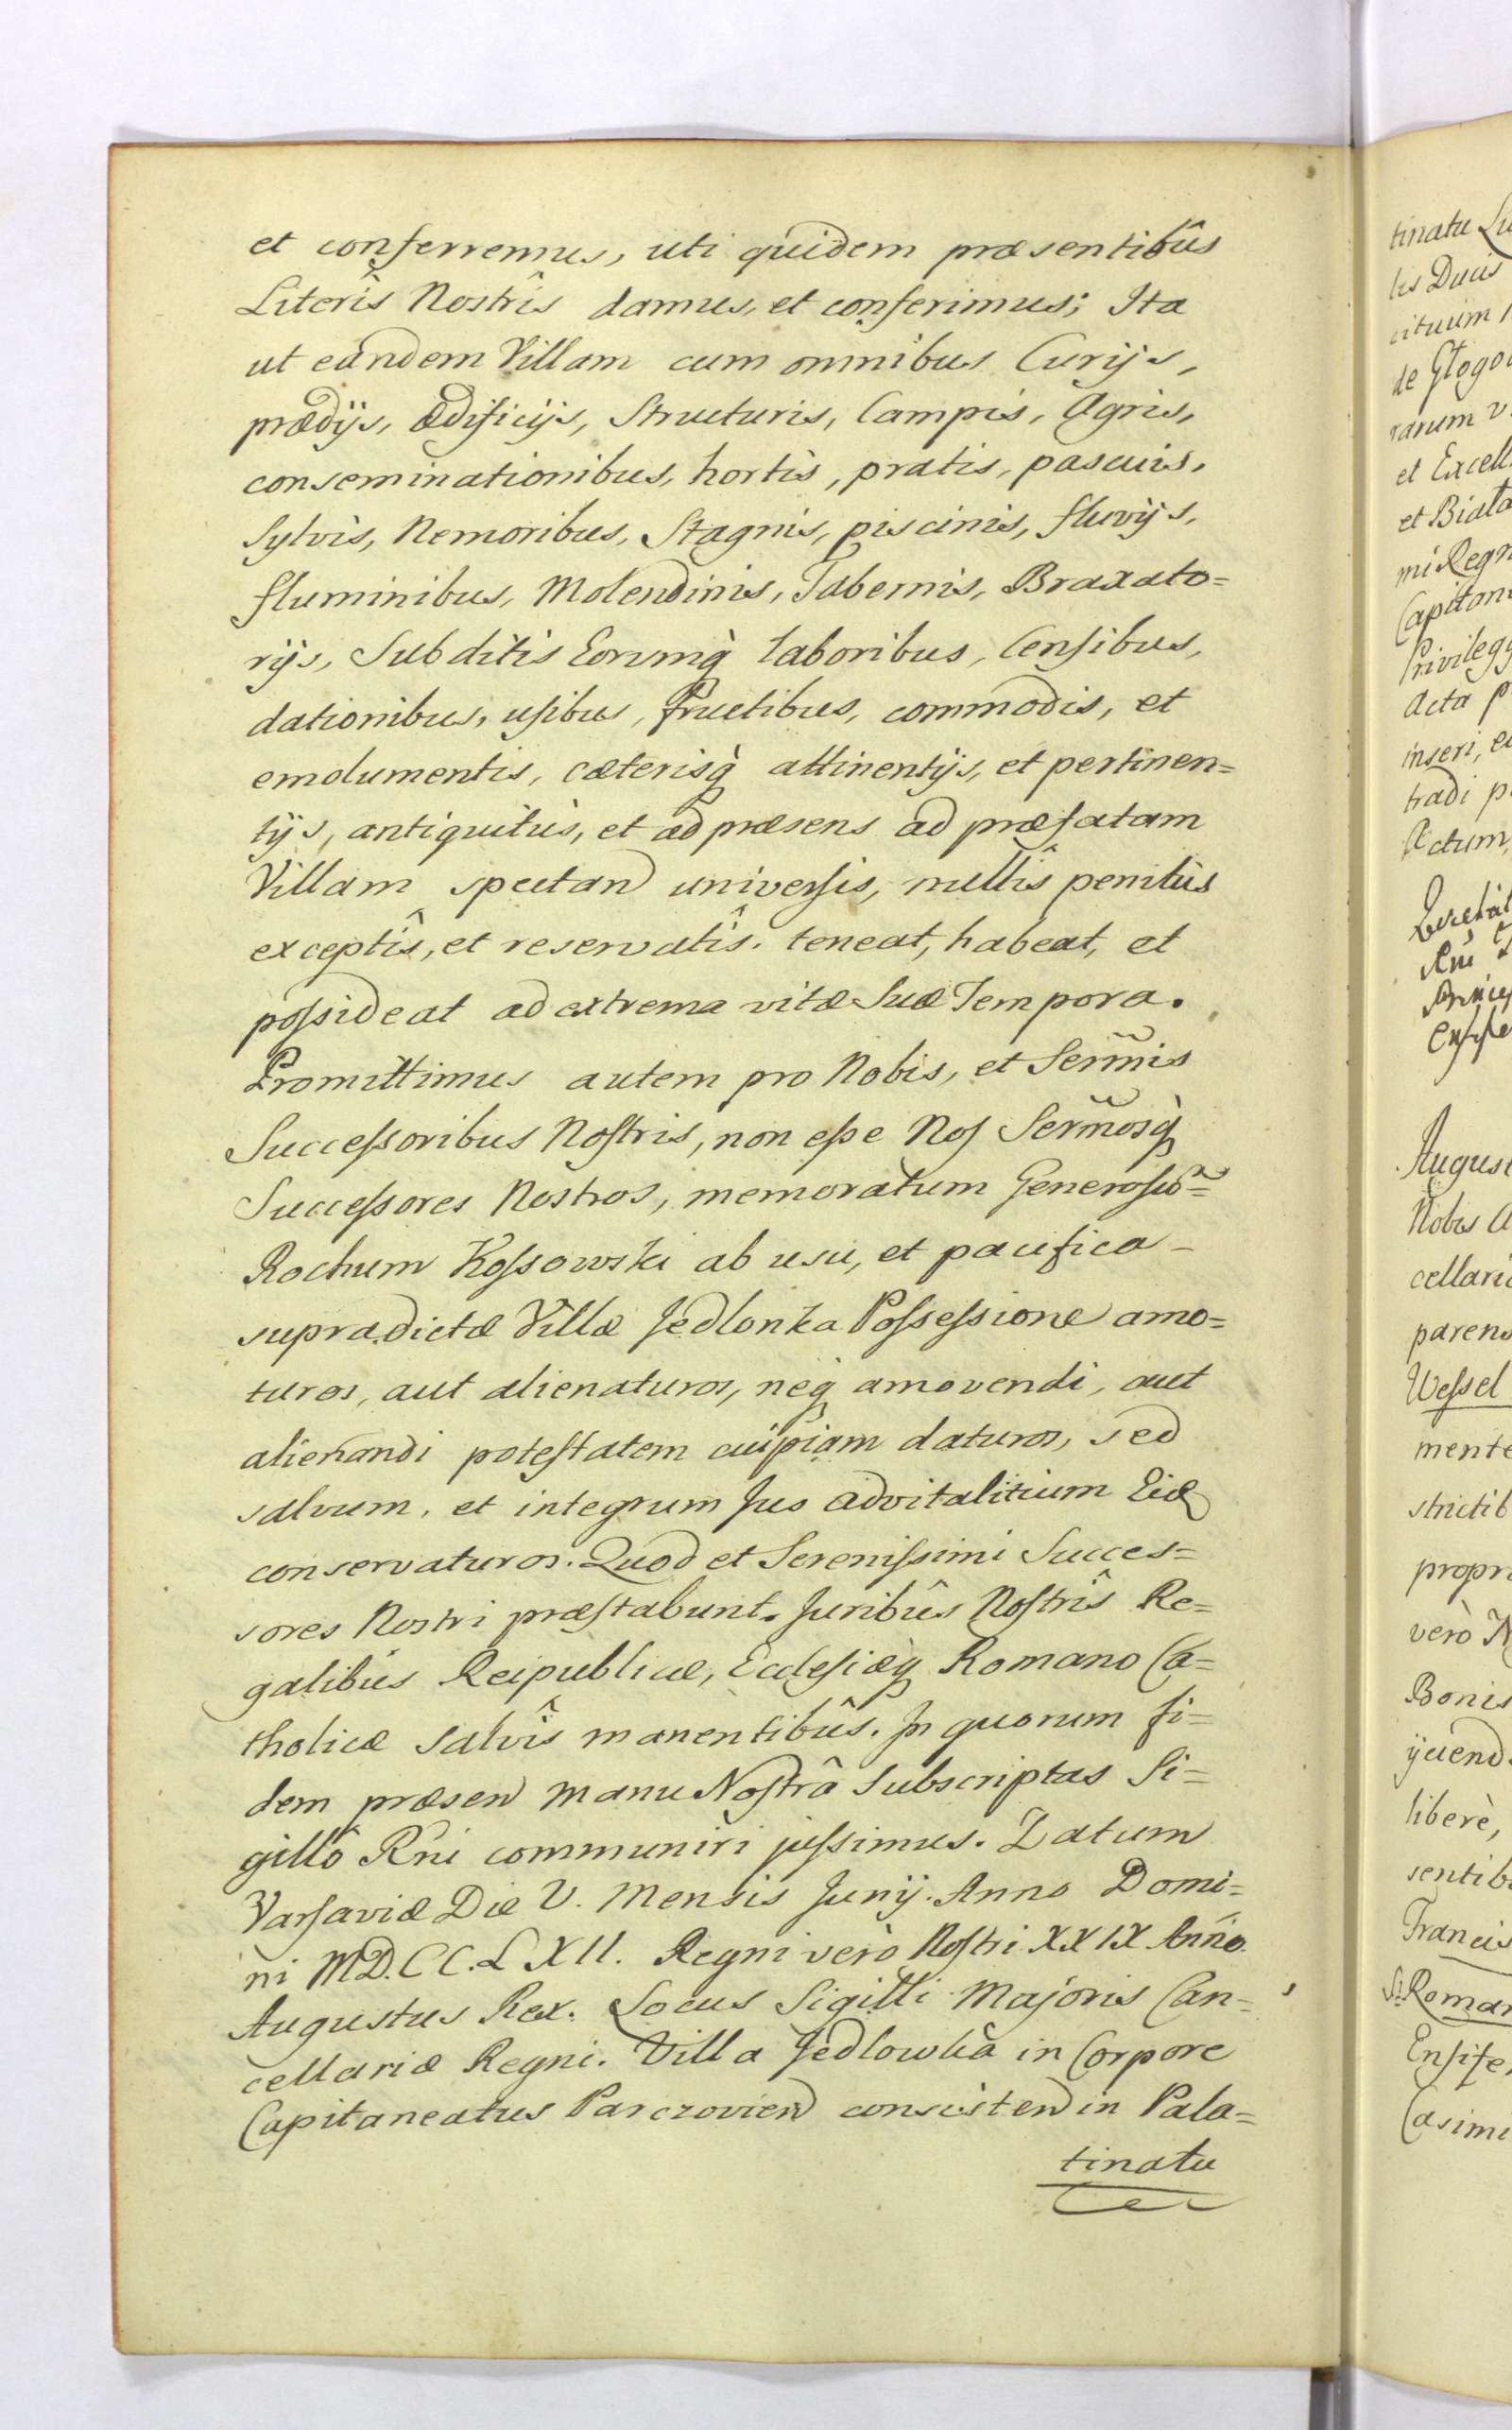 et conferremus, uti quidem præsentibûs
Literîs Nostrîs damus, et conferimus; Ita
ut eandem Villam cum omnibus Curijs,
prædijs, ædificijs, Structuris, Campis, Agris,
conseminationibus, hortis, pratis, pascuis,
Sylvis, Nemoribus, Stagnis, piscinis, fluvijs,
fluminibus, Molendinis, Tabernis, Braxato=
rijs, Subditis Eorumq̀ laboribus, Censibus,
dationibus, usibus, fructibus, commodis, et
emolumentis, cæterisq̀ attinentijs, et pertinen=
tijs, antiquitùs, et ad præsens ad præfatam
Villam spectan universis, nullîs penitùs
exceptîs, et reservatîs. teneat, habeat, et
possideat ad extrema vitæ Suæ Tempora.
Promittimus autem pro Nobis, et Serm̃is
Successoribus Nostris, non esse Nos Serm̃osq̀
Successores Nostros, memoratum Generosũ=
Rochum Kossowski ab usu, et pacifica
supradictæ Villæ Jedlonka Possessione amo=
turos, aut alienaturos, neq̀ amovendi, aut
alienandi potestatem cuipiam daturos, sed
salvum, et integrum Jus advitalitium Eid
conservaturos. Quod et Serenissimi Succes=
sores Nostri præstabunt. Juribûs Nostrîs Re=
galibus Reipublicæ, Ecclesiæq Romano Ca=
tholicæ salvîs manentibûs. In quorum fi=
dem præsen manu Nostrâ Subscriptas Si=
gillô Rñi communiri jussimus. Datum
Varsaviæ Die V. Mensis Junij. Anno Domi=
ni MD.CC.LXII. Regni verò Nostri XXIX Anño.
Augustus Rex. Locus Sigilli Majoris Can=
cellariæ Regni. Villa Jedlowka in Corpore
Capitaneatus Parczovien consisten in Pala=
tinatu
tinatu
lis Ducis
cituum
de Glogo
rarum v
et Excell
et Biala
mi Regn
Capitan
Privilegy
Acta p
inseri, e
tradi p
Actum,
August
Nobis A
cellari
parens
Wessel
mente
strictib
propri
verò N
Bonis
ijcend
liberè,
sentib
Francis
Roman
Ensife
Casimi